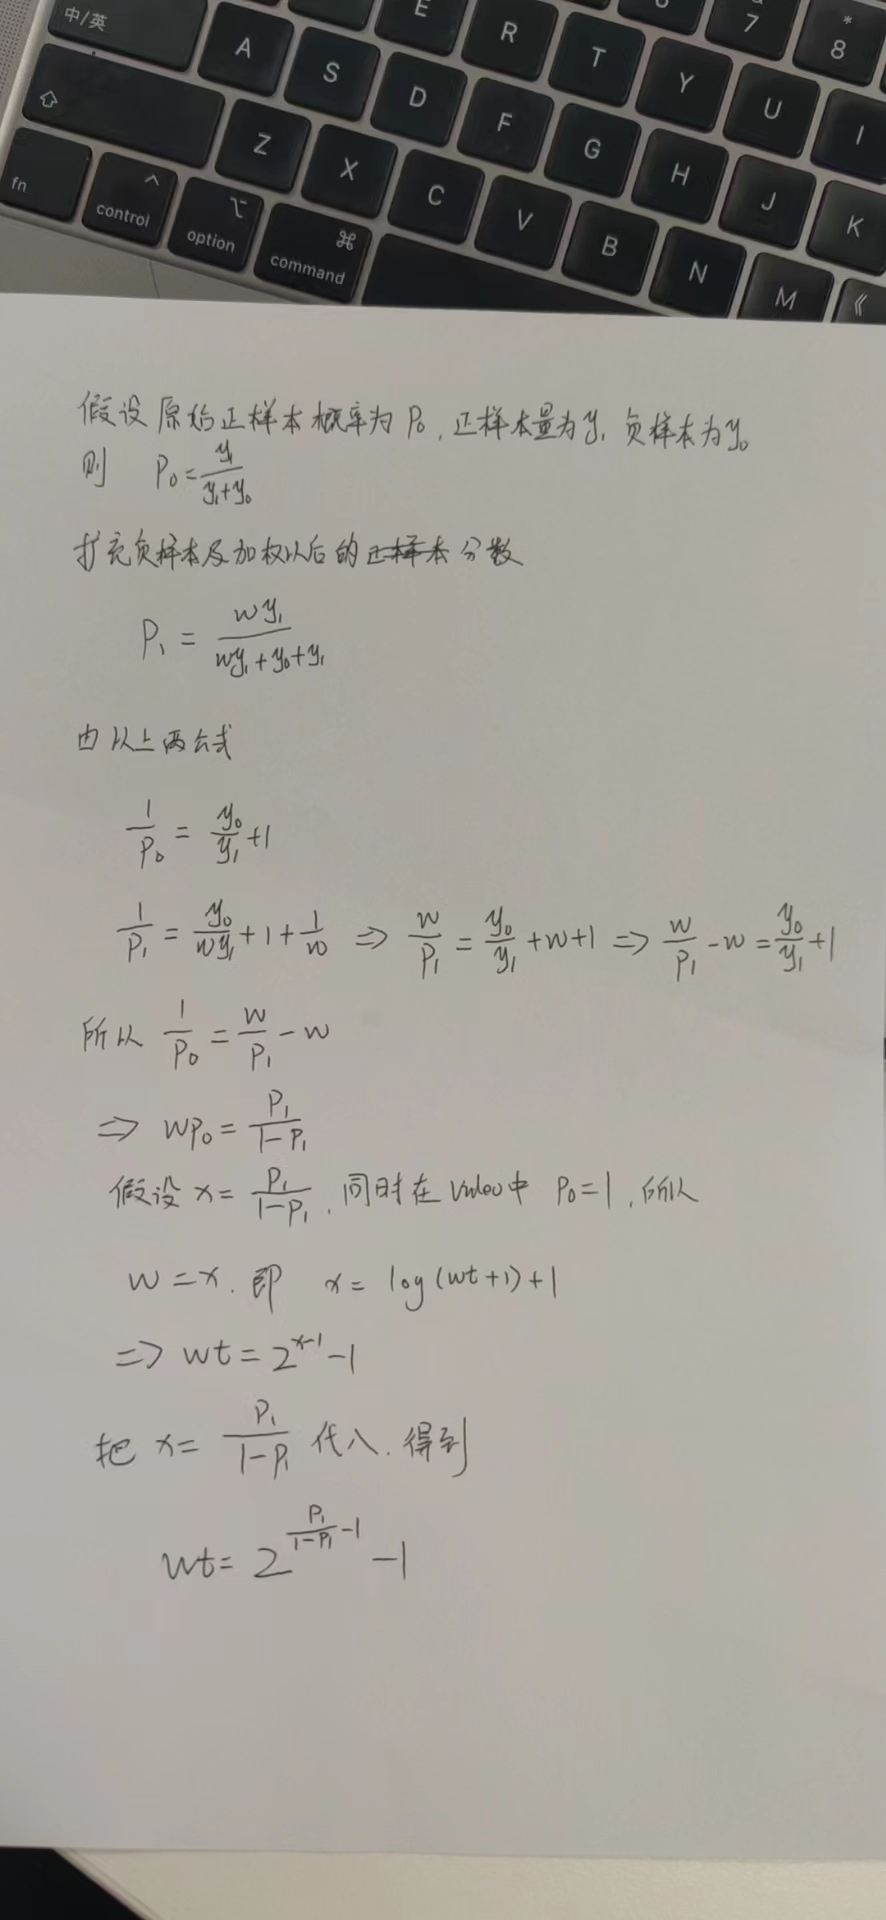 中/英
E
R
T
Y
U
I
7
*
8
A
S
D
F
G
H
J
K
Z
X
C
V
B
N
M
《
fn
control
option
⌘
command
假设原始正样本概率为P₀,正样本量为y₁ 负样本为y₀
则 P₀=y₁/(y₁+y₀)
扩充负样本及加权以后的正样本分数
P₁ = wy₁/(wy₁+y₀+y₁)
由以上两公式
1/P₀ = y₀/y₁+1
1/P₁ = y₀/wy₁+1+1/w => w/P₁ = y₀/y₁+w+1 => w/P₁-w = y₀/y₁+1
所以 1/P₀ = w/P₁-w
=> wP₀ = P₁/(1-P₁)
假设 x = P₁/(1-P₁),同时在video中 P₀=1,所以
w=x.即 x= log(wt+1)+1
=> wt=2^(x-1)-1
把 x= P₁/(1-P₁) 代入.得到
wt= 2^(P₁/(1-P₁)-1)-1